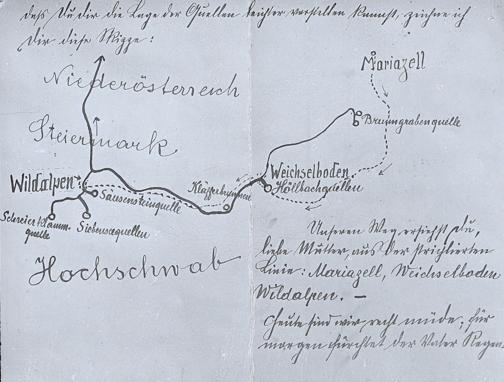 daß Du dir die Lage der Quellen leichter vorstellen kannst, zeichne ich
Dir diese Skizze:
Mariazell
Niederösterreich
Brunngrabenquelle
Steiermark
Weichselboden
Höllbachquellen
Wildalpen
Kläfferbrunnen
Säusensteinquelle
Schreier Klamm-
quelle
Siebenseequellen
Hochschwab
Unseren Weg ersiehst Du,
liebe Mutter, aus der strichlierten
Linie: Mariazell, Weichselboden
Wildalpen. —
Heute sind wir recht müde; für
morgen fürchtet der Vater Regen.